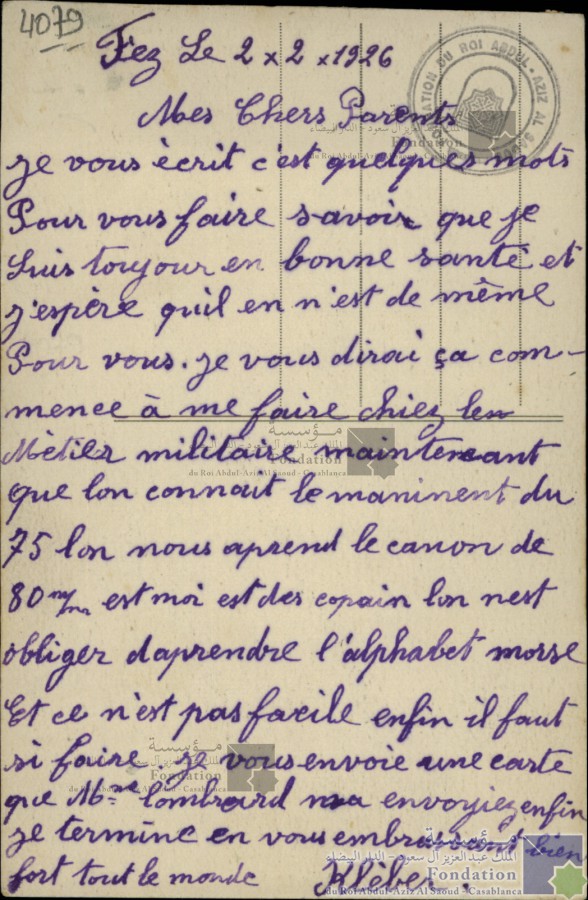 4079
Fez Le 2 x 2 x 1926
Mes Chers Parents
je vous écrit c'est quelques mots
Pour vous faire savoir que je
suis toujour en bonne santé et
j'espère quil en n'est de même
Pour vous. je vous dirai ça com-
mence à me faire chiez le
Métier militaire maintenant
que lon connait le maniment du
75 lon nous aprend le canon de
80 m/m est moi est des copain lon nest
obliger daprendre l'alphabet morse
Et ce n'est pas facile enfin il faut
si faire je vous envoie une carte
que Mme Lombard ma envoyiez enfin
je termine en vous embrassant bien
fort tout le monde Kléber.
FONDATION DU ROI ABDUL-AZIZ AL SAOUD
مؤسسة
الملك عبد العزيز آل سعود - الدار البيضاء
Fondation
du Roi Abdul-Aziz Al Saoud - Casablanca
مؤسسة
الملك عبد العزيز آل سعود - الدار البيضاء
Fondation
du Roi Abdul-Aziz Al Saoud - Casablanca
مؤسسة
الملك عبد العزيز آل سعود - الدار البيضاء
Fondation
du Roi Abdul-Aziz Al Saoud - Casablanca
مؤسسة
الملك عبد العزيز آل سعود - الدار البيضاء
Fondation
du Roi Abdul-Aziz Al Saoud - Casablanca